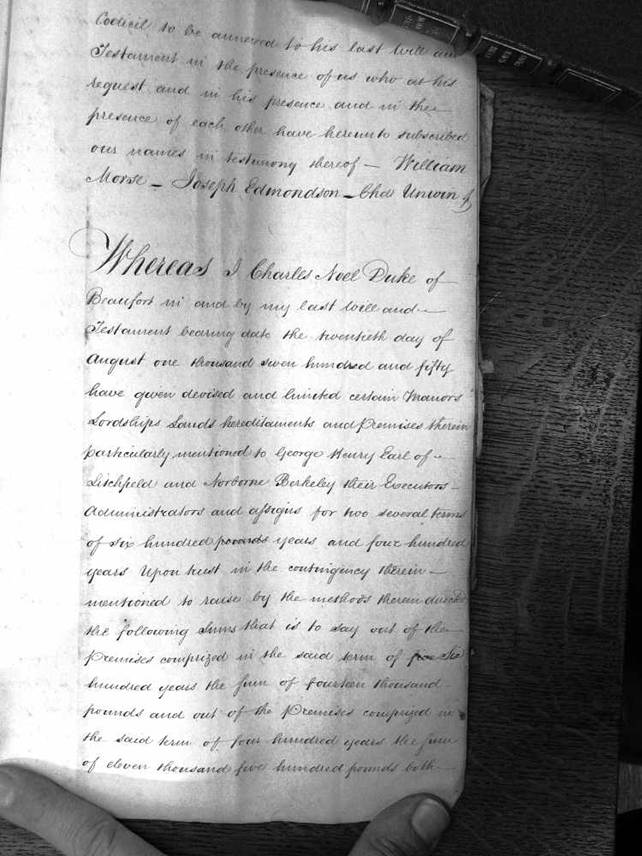 Codicil to be annexed to his last Will and
Testament in the presence of us who at his
request and in his presence and in the
presence of each other have hereunto subscribed
our names in testimony thereof — William
Morse — Joseph Edmondson — Chas Unwin
Whereas I Charles Noel Duke of
Beaufort in and by my last Will and
Testament bearing date the twentieth day of
August one thousand seven hundred and fifty
have given devised and limited certain Manors
Lordships Lands hereditaments and Premises therein
particularly mentioned to George Henry Earl of
Litchfield and Norborne Berkeley their Executors
Administrators and assigns for two several terms
of six hundred pounds years and four hundred
years Upon trust in the contingency therein
mentioned to raise by the methods therein directed
the following Sums that is to say out of the
Premises comprized in the said term of four Six
hundred years the sum of fourteen thousand
pounds and out of the Premises comprized in
the said term of four hundred years the sum
of eleven thousand five hundred pounds both